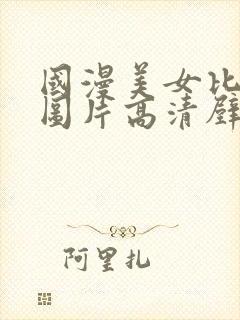 國漫美女比
圖片高清壁
阿里扎